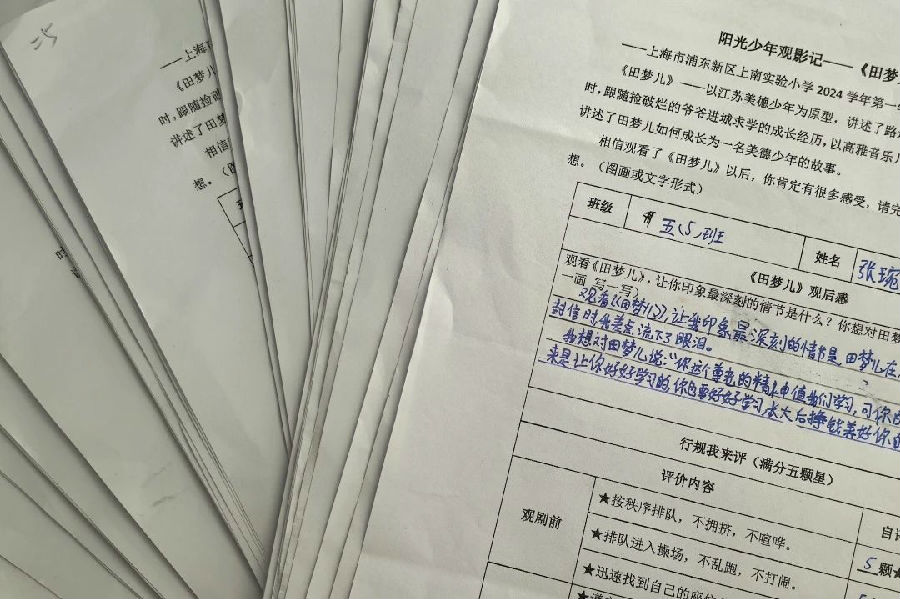 二5
阳光少年观影记——《田梦
——上海市浦东新区上南实验小学 2024 学年第一
《田梦儿》——以江苏美德少年为原型，讲述了路
时，跟随捡破烂的爷爷进城求学的成长经历，以高雅音乐儿
讲述了田梦儿如何成长为一名美德少年的故事。
相信观看了《田梦儿》以后，你肯定有很多感受，请完
想。（图画或文字形式）
班级
五(5)班
姓名
张琬
《田梦儿》观后感
观看《田梦儿》，让你印象最深刻的情节是什么？你想对田梦
一画 写一写）
观看《田梦儿》，让我印象最深刻的情节是田梦儿在
封信时我差点流下了眼泪。
我想对田梦儿说：“你这个尊老的精神值我们学习，可你
来是让你好好学习的，你也要好好学习，长大后挣钱养好你
行规我来评（满分五颗星）
评价内容
自
观剧前
★按秩序排队，不拥挤，不喧哗。
★排队进入操场，不乱跑，不打闹。
5 颗★
★迅速找到自己的座位
《田梦儿》
时，跟随捡破
讲述了田梦
相信
想。（图